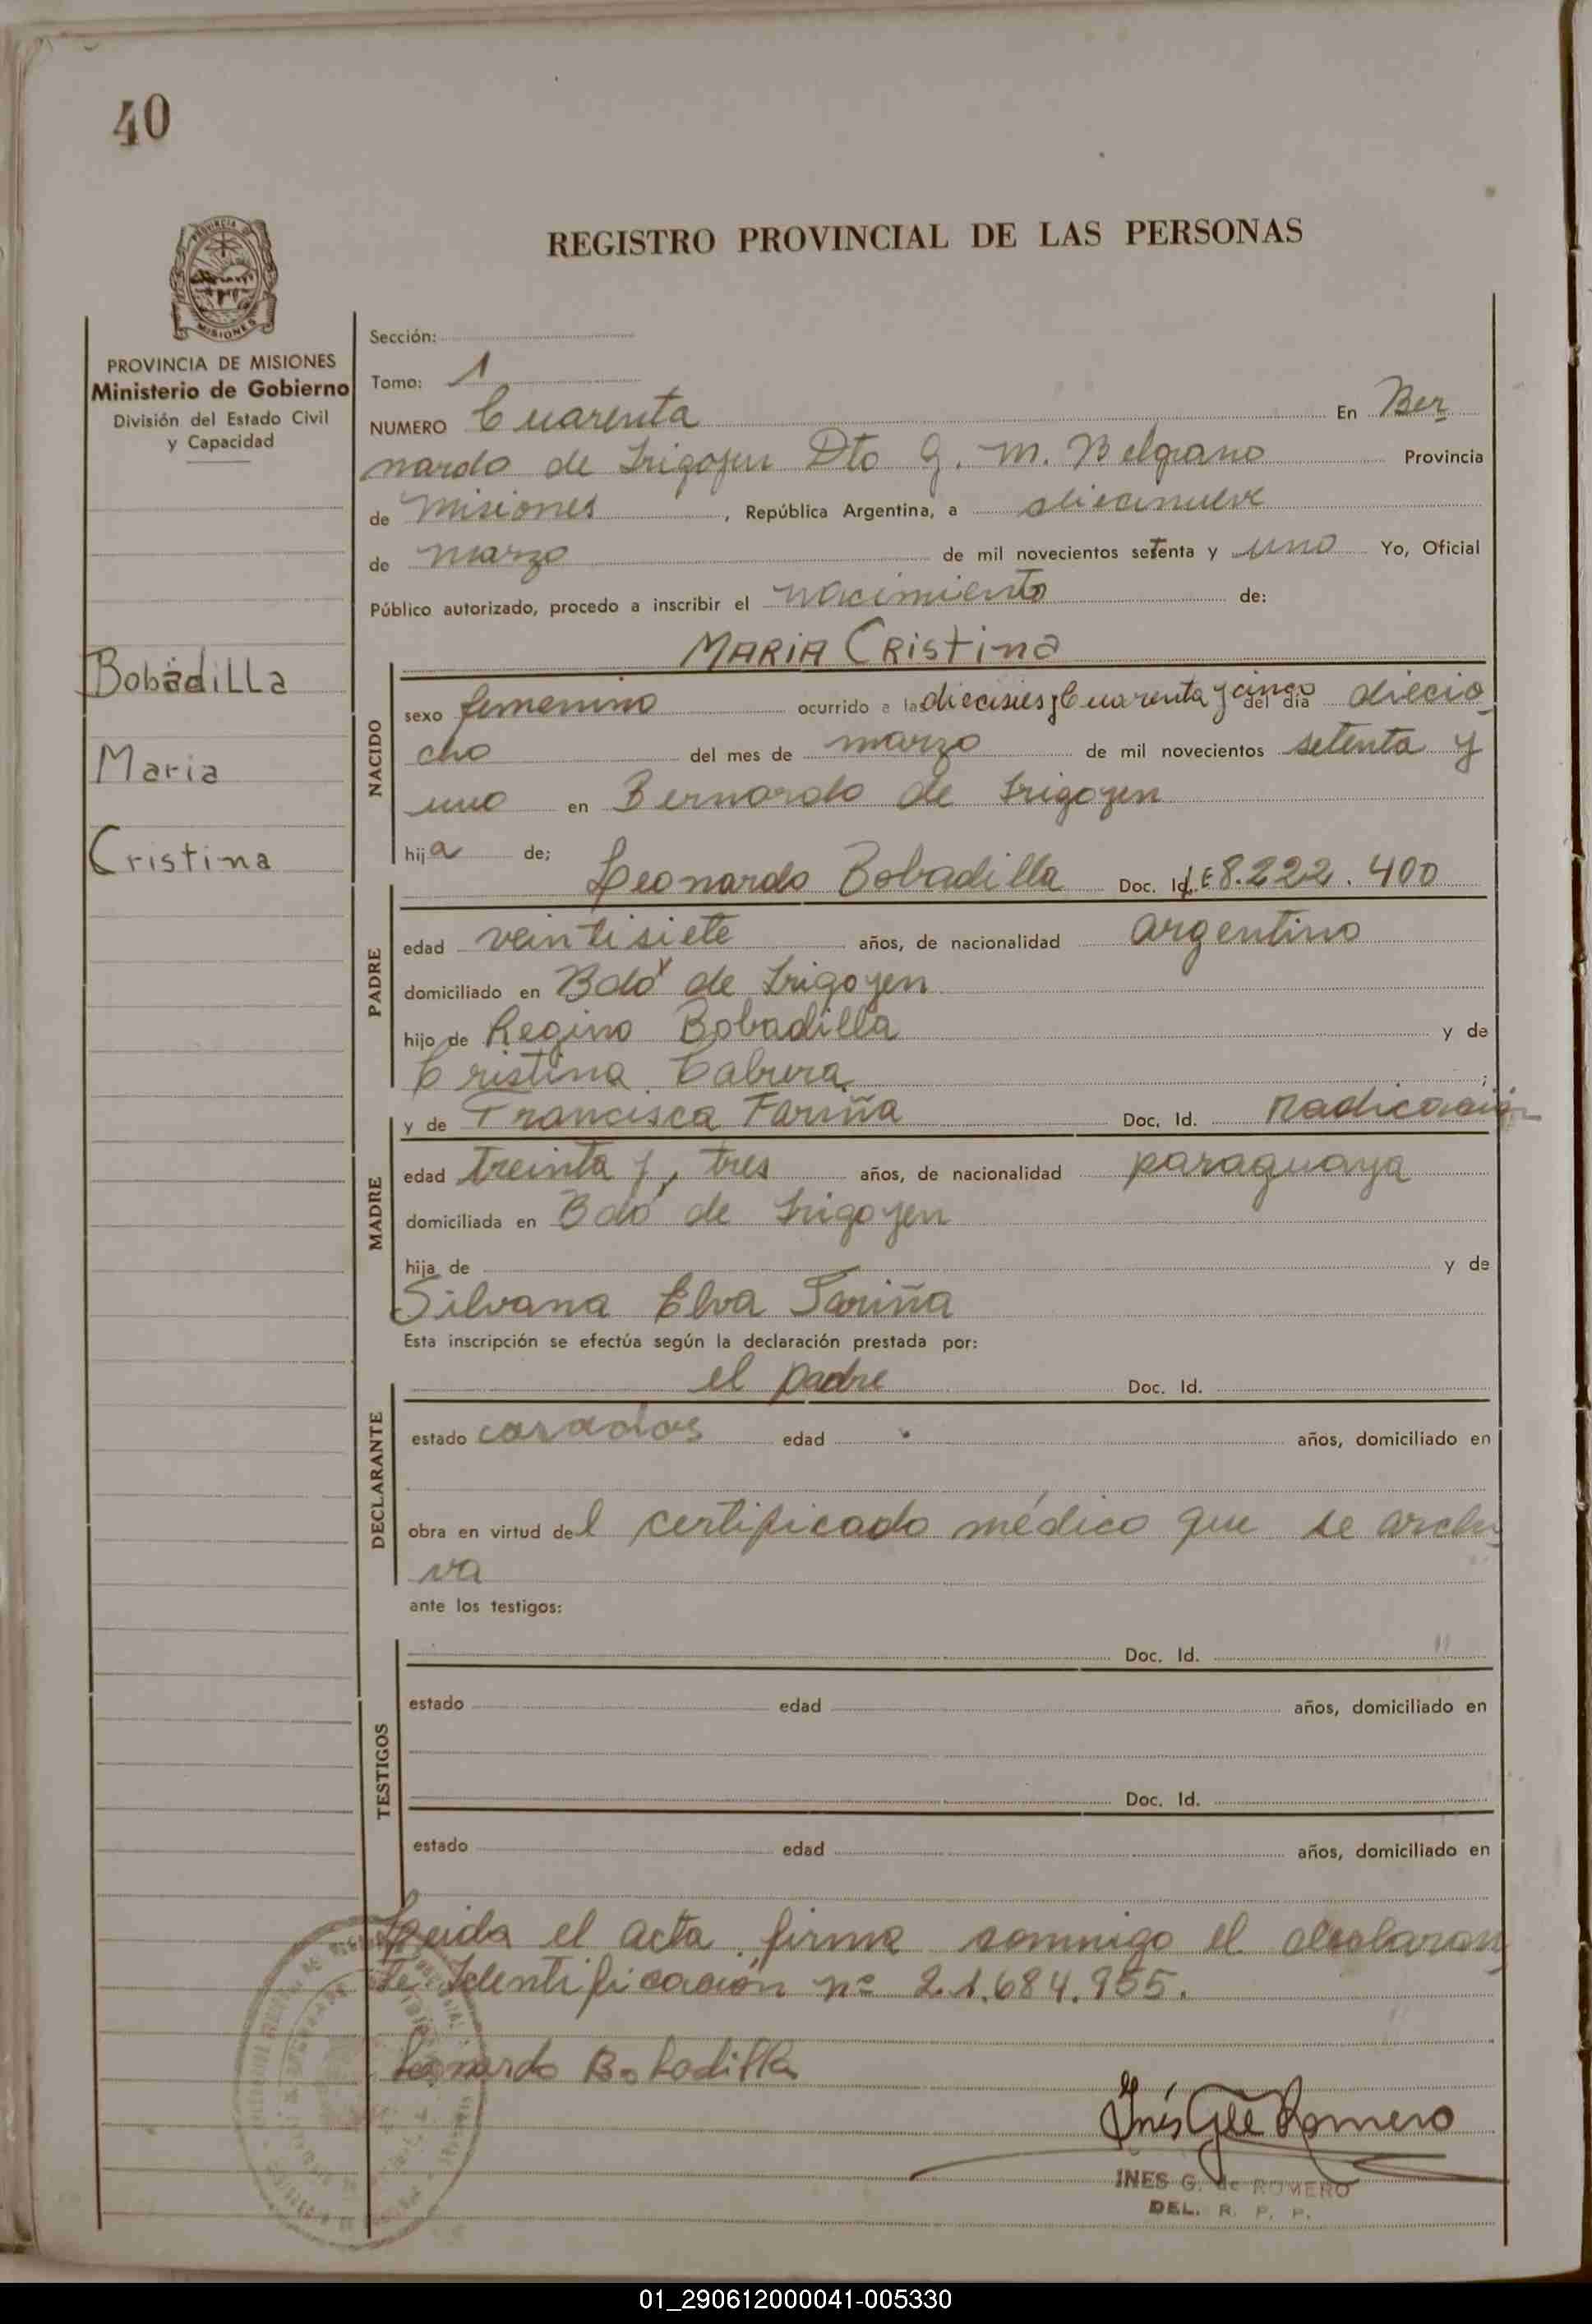 40
PROVINCIA DE MISIONES
Ministerio de Gobierno
División del Estado Civil
y Capacidad
Bobadilla
Maria
Cristina
REGISTRO PROVINCIAL DE LAS PERSONAS
Sección:
Tomo: 1
NUMERO Cuarenta En Ber
nardo de Irigoyen Dto G. M. Belgrano Provincia
de Misiones, República Argentina, a diecinueve
de marzo de mil novecientos setenta y uno Yo, Oficial
Público autorizado, procedo a inscribir el nacimiento de:
MARIA CRistina
NACIDO
sexo femenino ocurrido a las dieciseis y Cuarenta y cinco del día diecio
cho del mes de marzo de mil novecientos setenta y
uno en Bernardo de Irigoyen
hija de;
Leonardo Bobadilla Doc. Id. L.E 8.222.400
PADRE
edad veintisiete años, de nacionalidad argentino
domiciliado en Bdo de Irigoyen
hijo de Regino Bobadilla y de
Cristina Cabrera;
y de Francisca Fariña Doc. Id. Radicación
MADRE
edad treinta y tres años, de nacionalidad paraguaya
domiciliada en Bdo de Irigoyen
hija de y de
Silvana Elva Fariña
Esta inscripción se efectúa según la declaración prestada por:
el padre Doc. Id.
DECLARANTE
estado casados edad años, domiciliado en
obra en virtud del certificado médico que se archi
va
ante los testigos:
Doc. Id.
TESTIGOS
estado edad años, domiciliado en
Doc. Id.
estado edad años, domiciliado en
Leida el acta firma conmigo el declaran
te Identificación nº 21.684.955.
Leonardo Bobadilla
Inés G de Romero
INES G. de ROMERO
DEL. R. P. P.
01_290612000041-005330